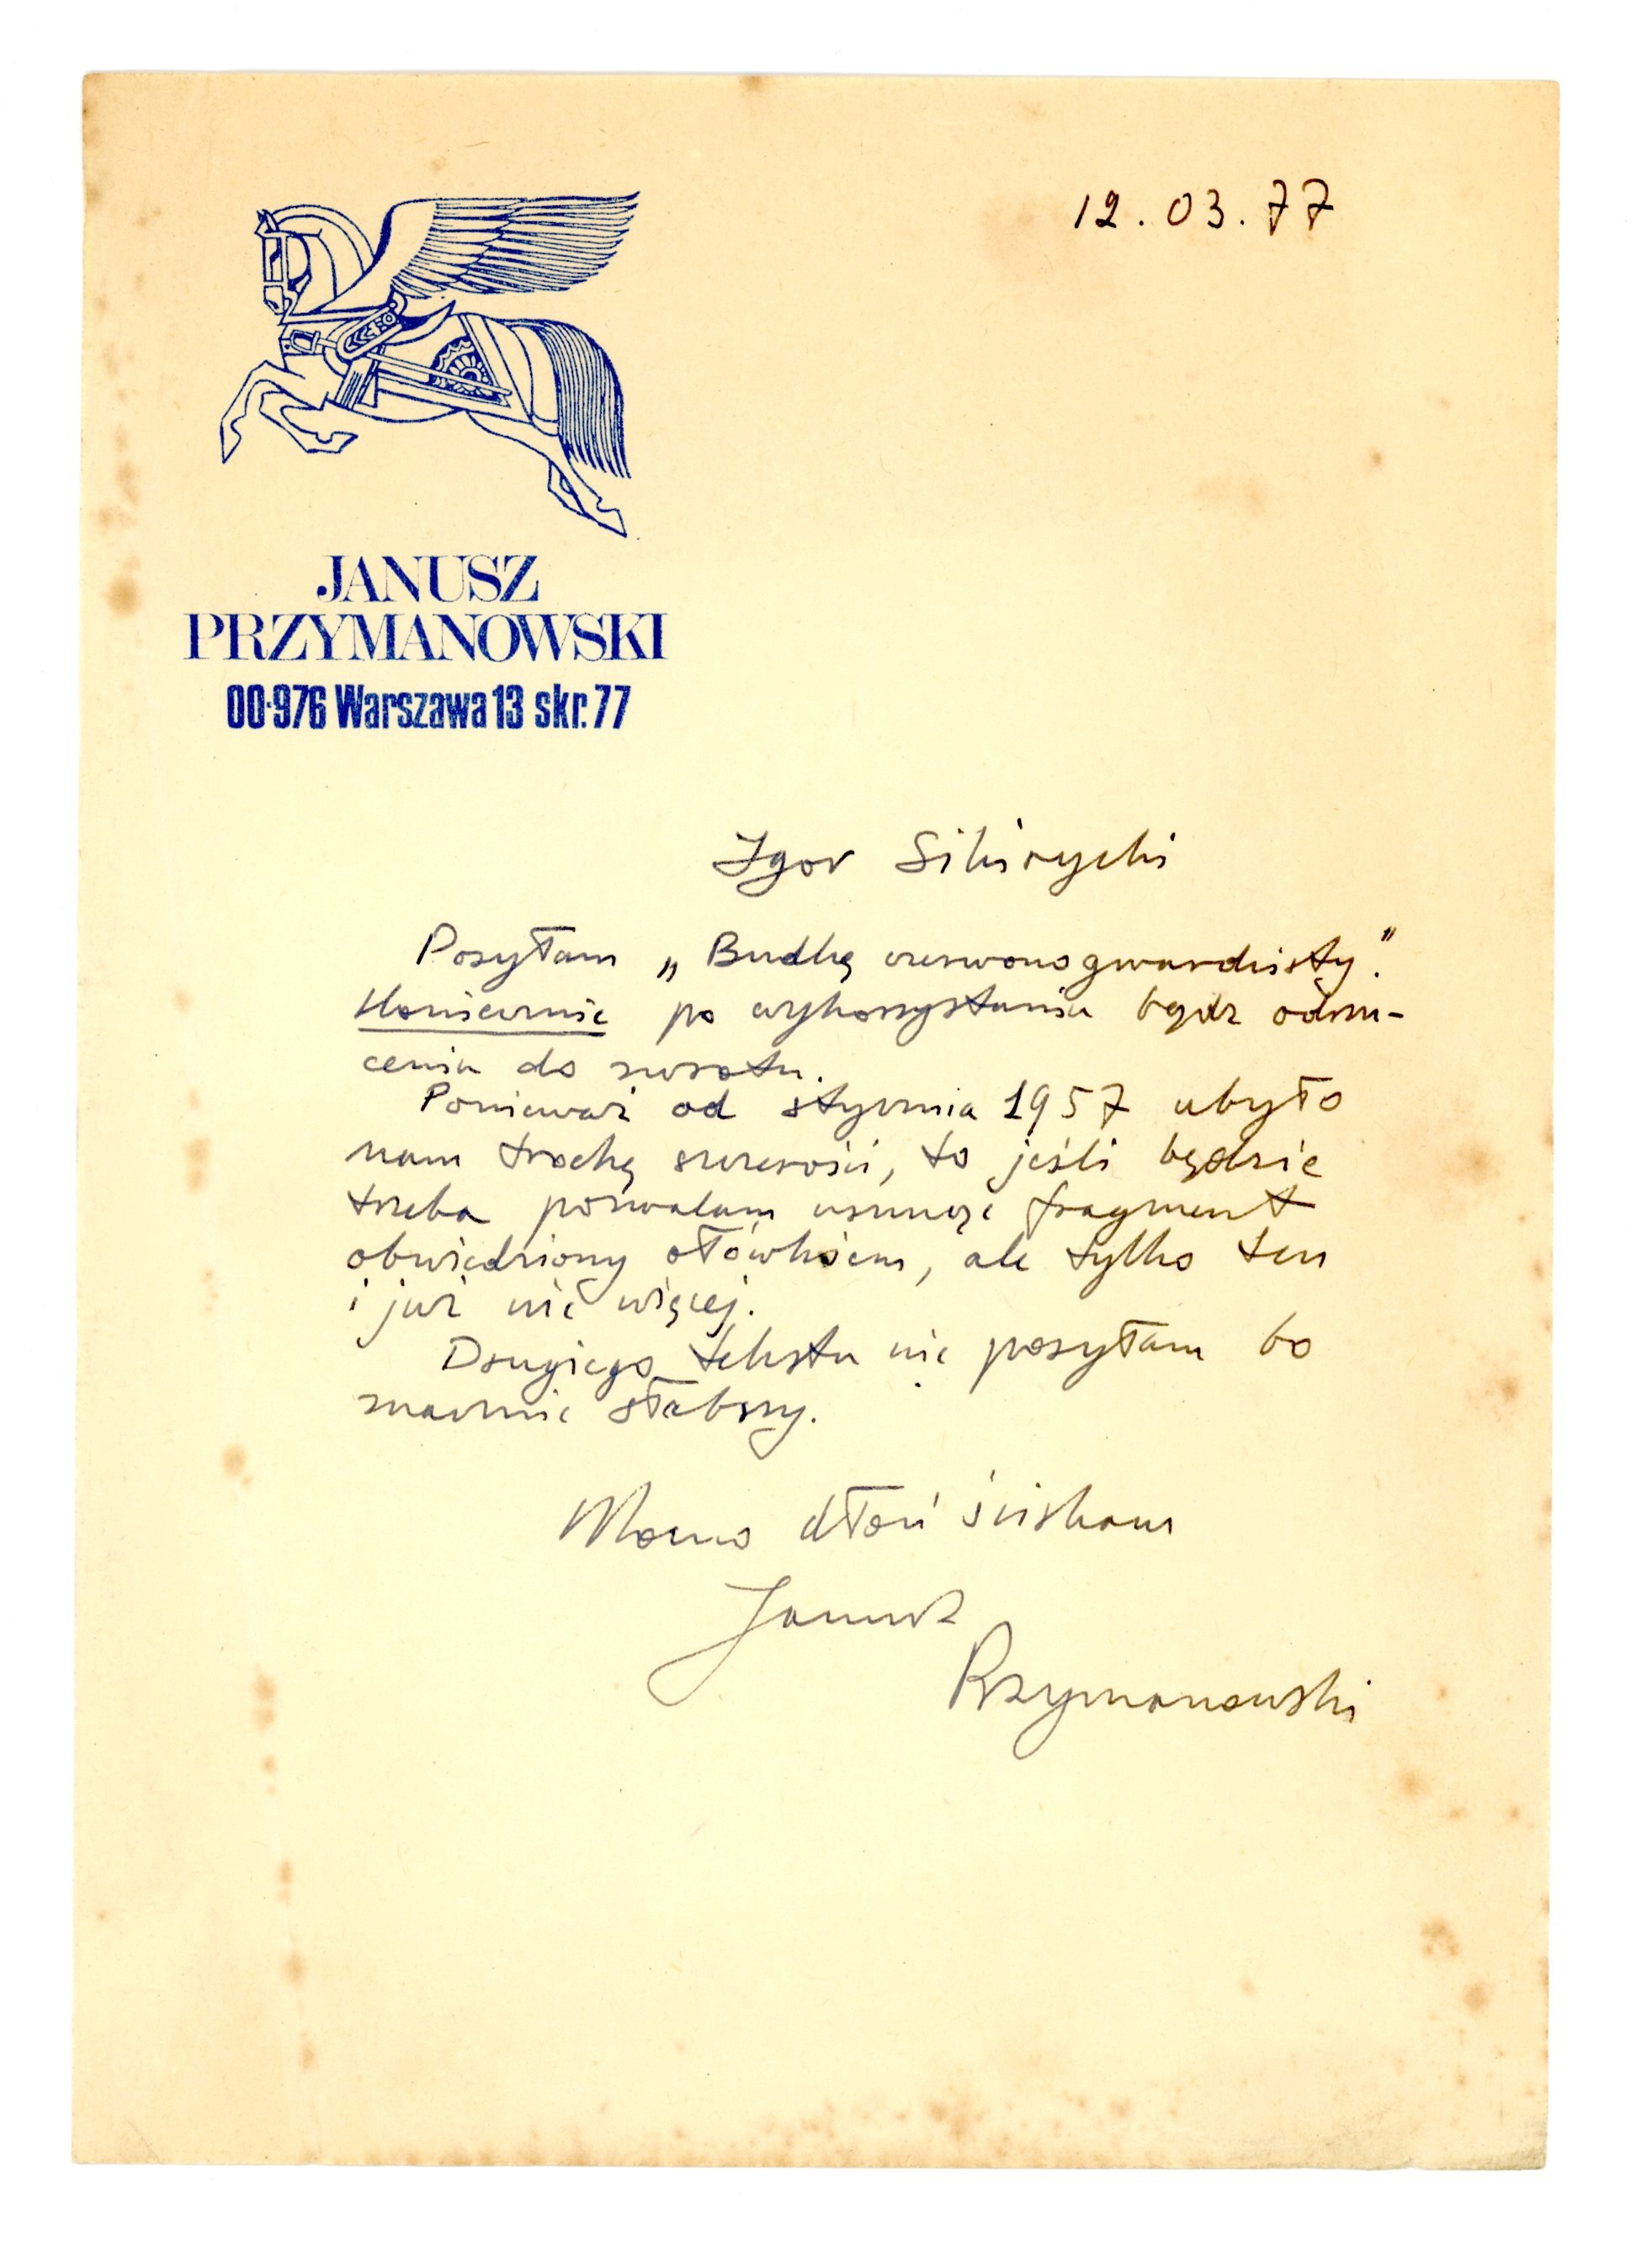 12.03.77
JANUSZ
PRZYMANOWSKI
00-976 Warszawa 13 skr. 77
Igor Sikirycki
Posyłam „Budkę czerwonogwardzisty."
Koniecznie po wykorzystaniu bądź odrzu-
cenia do zwrotu.
Ponieważ od stycznia 1957 ubyło
nam trochę szczerości, to jeśli będzie
trzeba pozwalam usunąć fragment
obwiedziony ołówkiem, ale tylko ten
i już nic więcej.
Drugiego tekstu nie posyłam bo
znacznie słabszy.
Mocno dłoń ściskam
Janusz
Przymanowski